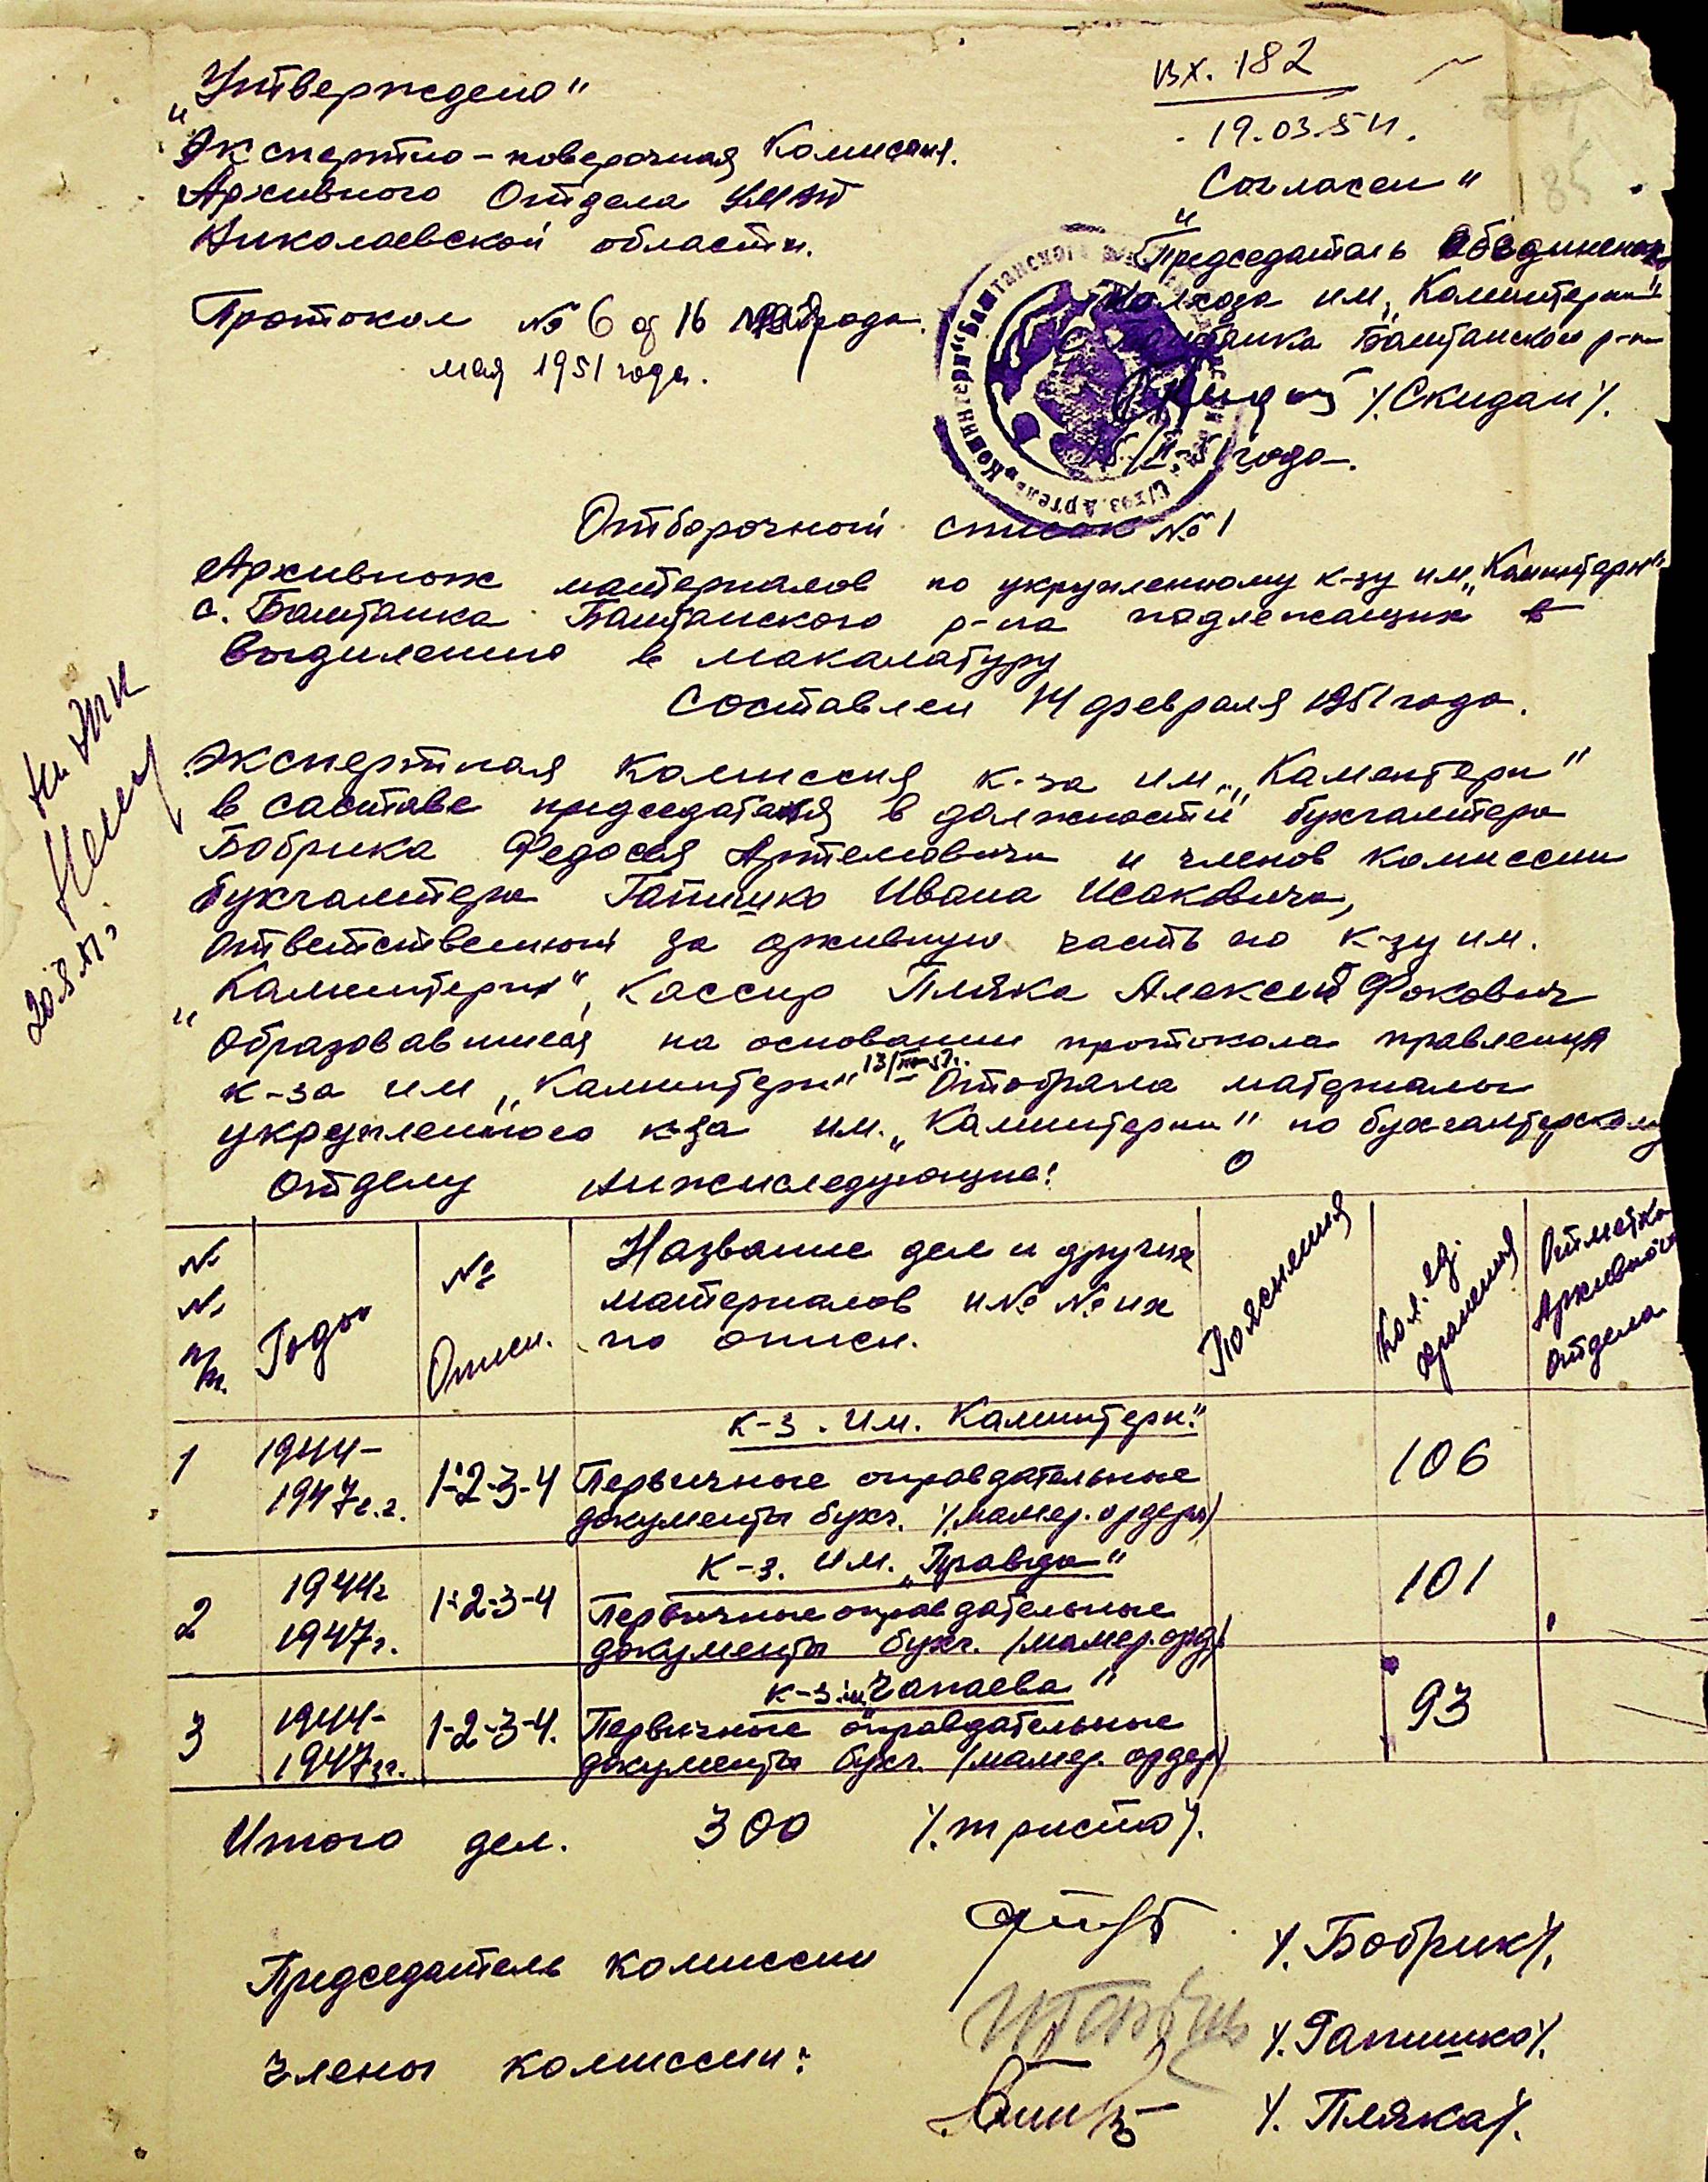 „Утверждено"
Экспертно-поверочная Комисия.
Архивного Отдела УМВД
Николаевской области.
Протокол № 6 от 16
мая 1951 года.
вх. 182
19.03.51.
85
„Согласен"
Председатель Объединеного
колхоза им. „Коминтерна"
с. Баштанка Баштанского р-на
/.Скидан/.
года.
Отборочный список № 1
Архивных материалов по укрупленному к-зу им. „Каминтерн"
с. Баштанка Баштанского р-на подлежащих в
выдилению в макалатуру
Составлен 14 февраля 1951 года.
На ЭПК
20.3.51.
Экспертная Комиссия к-за им. „Каментерн"
в саставе придседателя в должности бухгалтера
Бобрика Федосея Артемовича и членов комиссии
бухгалтера Гапишко Ивана Исаковича,
ответственный за архивную часть по к-зу им.
„Каминтерн", Кассир Пляка Алексей Фокович
Образовавшиеся на основании протокола правления
к-за им „Каминтерн" Отобрала матерналы
укрупленного к-за им. „Каминтерн" по бухгалтерскому
отделу нижиследующие:
№ № п/п. Годы № Описи. Название дел и других материалов и № № их по описи. Пояснения Кол. ед. хранения Отметка Архивного отдела
к-з. им. Каминтерн."
1 1944- 1947г.г. 1-2-3-4 Первичные оправдательные документы бухг. /.мамер. ордера/ 106
К-з. им. „Правда"
2 1944г 1947г. 1-2-3-4 Первичные оправдательные документы бухг. /мамер. орд/ 101
к-з им „Чапаева"
3 1944- 1947гг. 1-2-3-4. Первичные оправдательные документы бухг. /мамер. ордер/ 93
Итого дел. 300 /.триста/.
Председатель комиссии /.Бобрик/.
Члены комиссии: /.Гапишко/.
/.Пляка/.